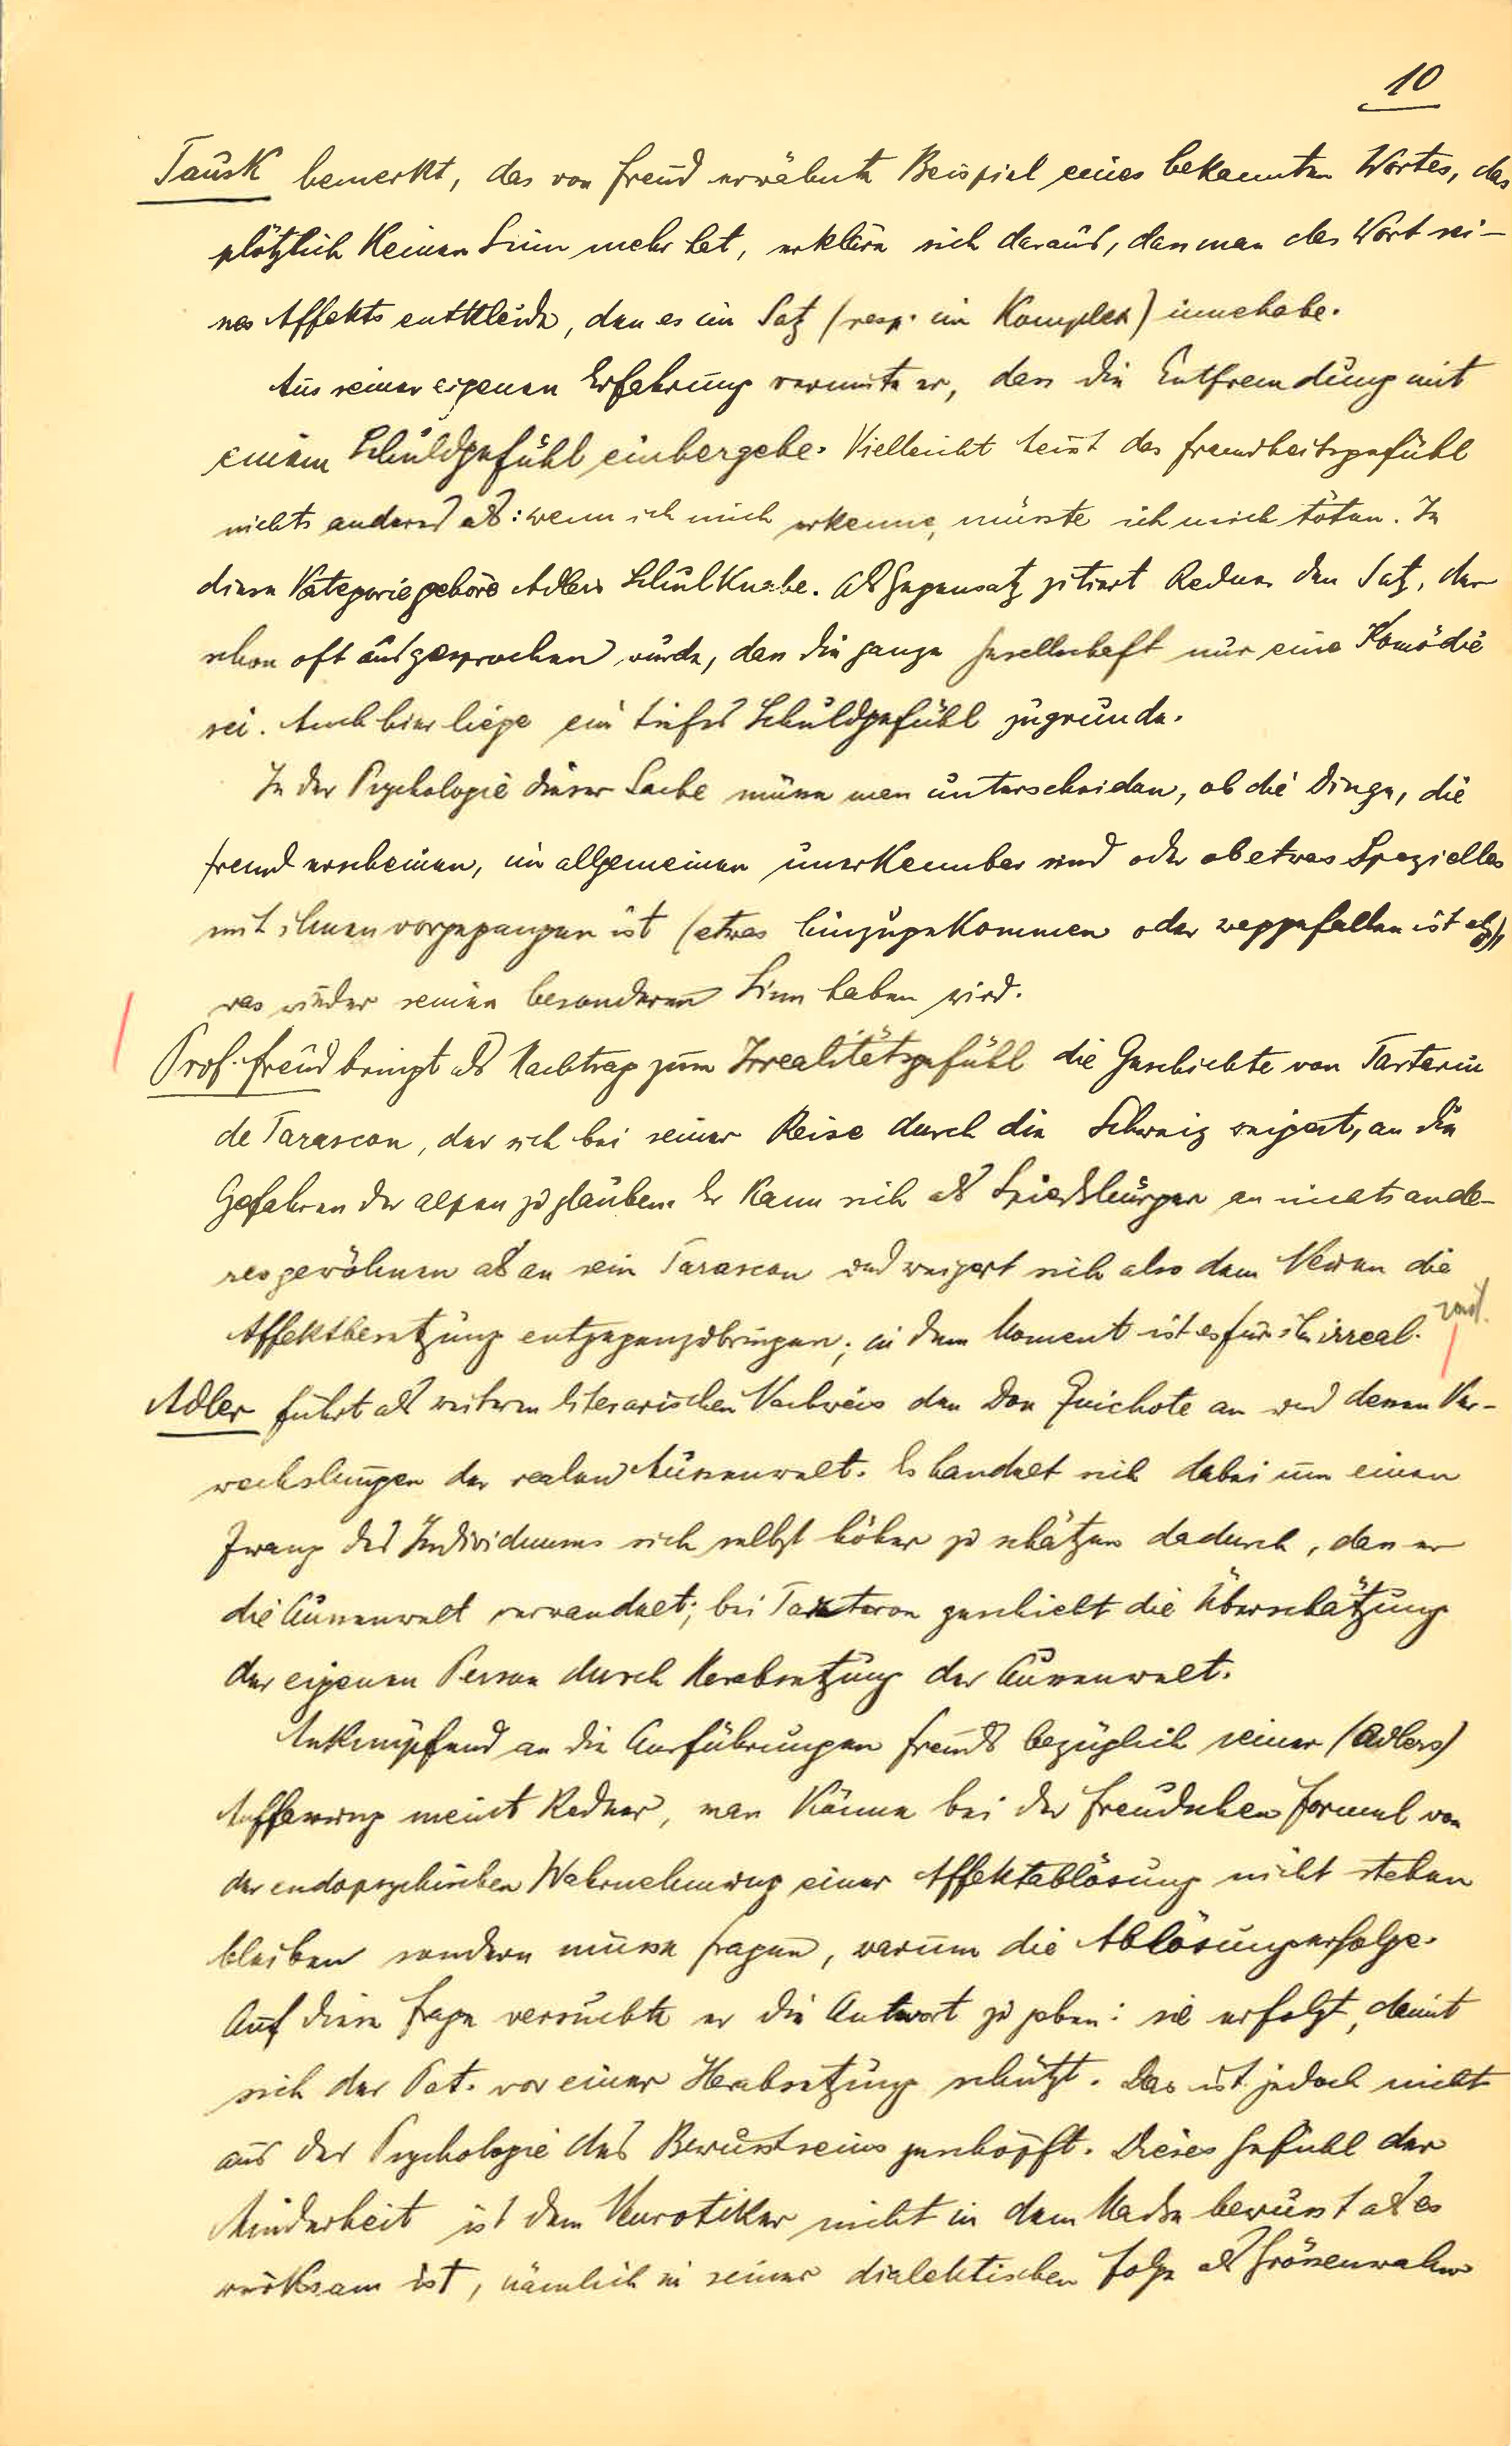 10
Tausk bemerkt, das von Freud erwähnte Beispiel eines bekannten Wortes, das
plötzlich keinen Sinn mehr hat, erkläre sich daraus, dass man das Wort sei-
nes Affekts entkleide, den es im Satz (resp. im Komplex) innehabe.
Aus seiner eigenen Erfahrung vermute er, dass die Entfremdung mit
einem Schuldgefühl einhergehe. Vielleicht heisst das Fremdheitsgefühl
nichts anderes als: wenn ich mich erkenne, müsste ich mich töten. In
diese Kategorie gehöre Adlers Schulknabe. Als Gegensatz zitiert Redner den Satz, der
schon oft ausgesprochen wurde, dass die ganze Gesellschaft nur eine Komödie
sei. Auch hier liege ein tiefes Schuldgefühl zugrunde.
In der Psychologie dieser Sache müsse man unterscheiden, ob die Dinge, die
fremd erscheinen, im allgemeinen unerkennbar sind oder ob etwas Spezielles
mit ihnen vorgegangen ist (etwas hinzugekommen oder weggefallen ist etz),
was wieder seinen besonderen Sinn haben wird.
Prof. Freud bringt als Nachtrag zum Irrealitätsgefühl die Geschichte von Tartarin
de Tarascon, der sich bei seiner Reise durch die Schweiz weigert, an die
Gefahren der Alpen zu glauben. Er kann sich als Spiessbürger an nichts ande-
res gewöhnen als an sein Tarascon und weigert sich also dem Neuen die
Affektbesetzung entgegenzubringen; in dem Moment ist es für ihn irreal.
Adler führt als weiteren literarischen Nachweis den Don Quichote an und dessen Ver-
wechslungen der realen Aussenwelt. Es handelt sich dabei um einen
Zwang des Individuums sich selbst höher zu schätzen dadurch, dass er
die Aussenwelt verwandelt; bei Tarteron geschieht die Überschätzung
der eigenen Person durch Herabsetzung der Aussenwelt.
Anknüpfend an die Ausführungen Freuds bezüglich seiner (Adlers)
Auffassung meint Redner, man könne bei der Freudschen Formel von
der endopsychischen Wahrnehmung einer Affektablösung nicht stehen
bleiben sondern müsse fragen, warum die Ablösung erfolge.
Auf diese Frage versuchte er die Antwort zu geben: sie erfolgt, damit
sich der Pat. vor einer Herabsetzung schützt. Das ist jedoch nicht
aus der Psychologie des Bewusstseins geschöpft. Dieses Gefühl der
Minderheit ist dem Neurotiker nicht in dem Masse bewusst als es
wirksam ist, nämlich in seiner dialektischen Folge als Grössenwahn